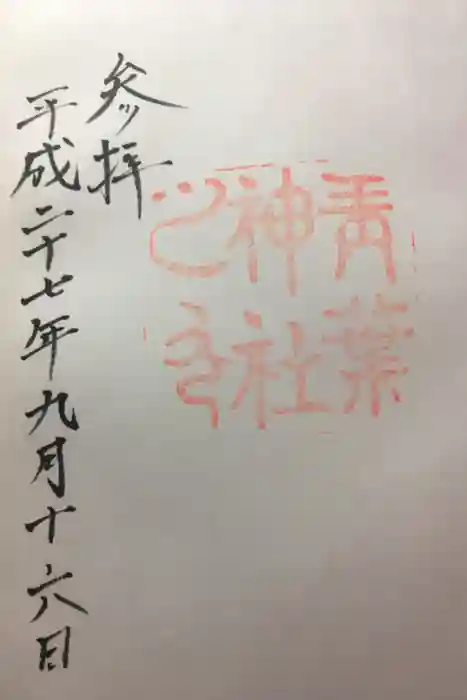 青葉
神社
之印
参拝
平成二十七年九月十六日